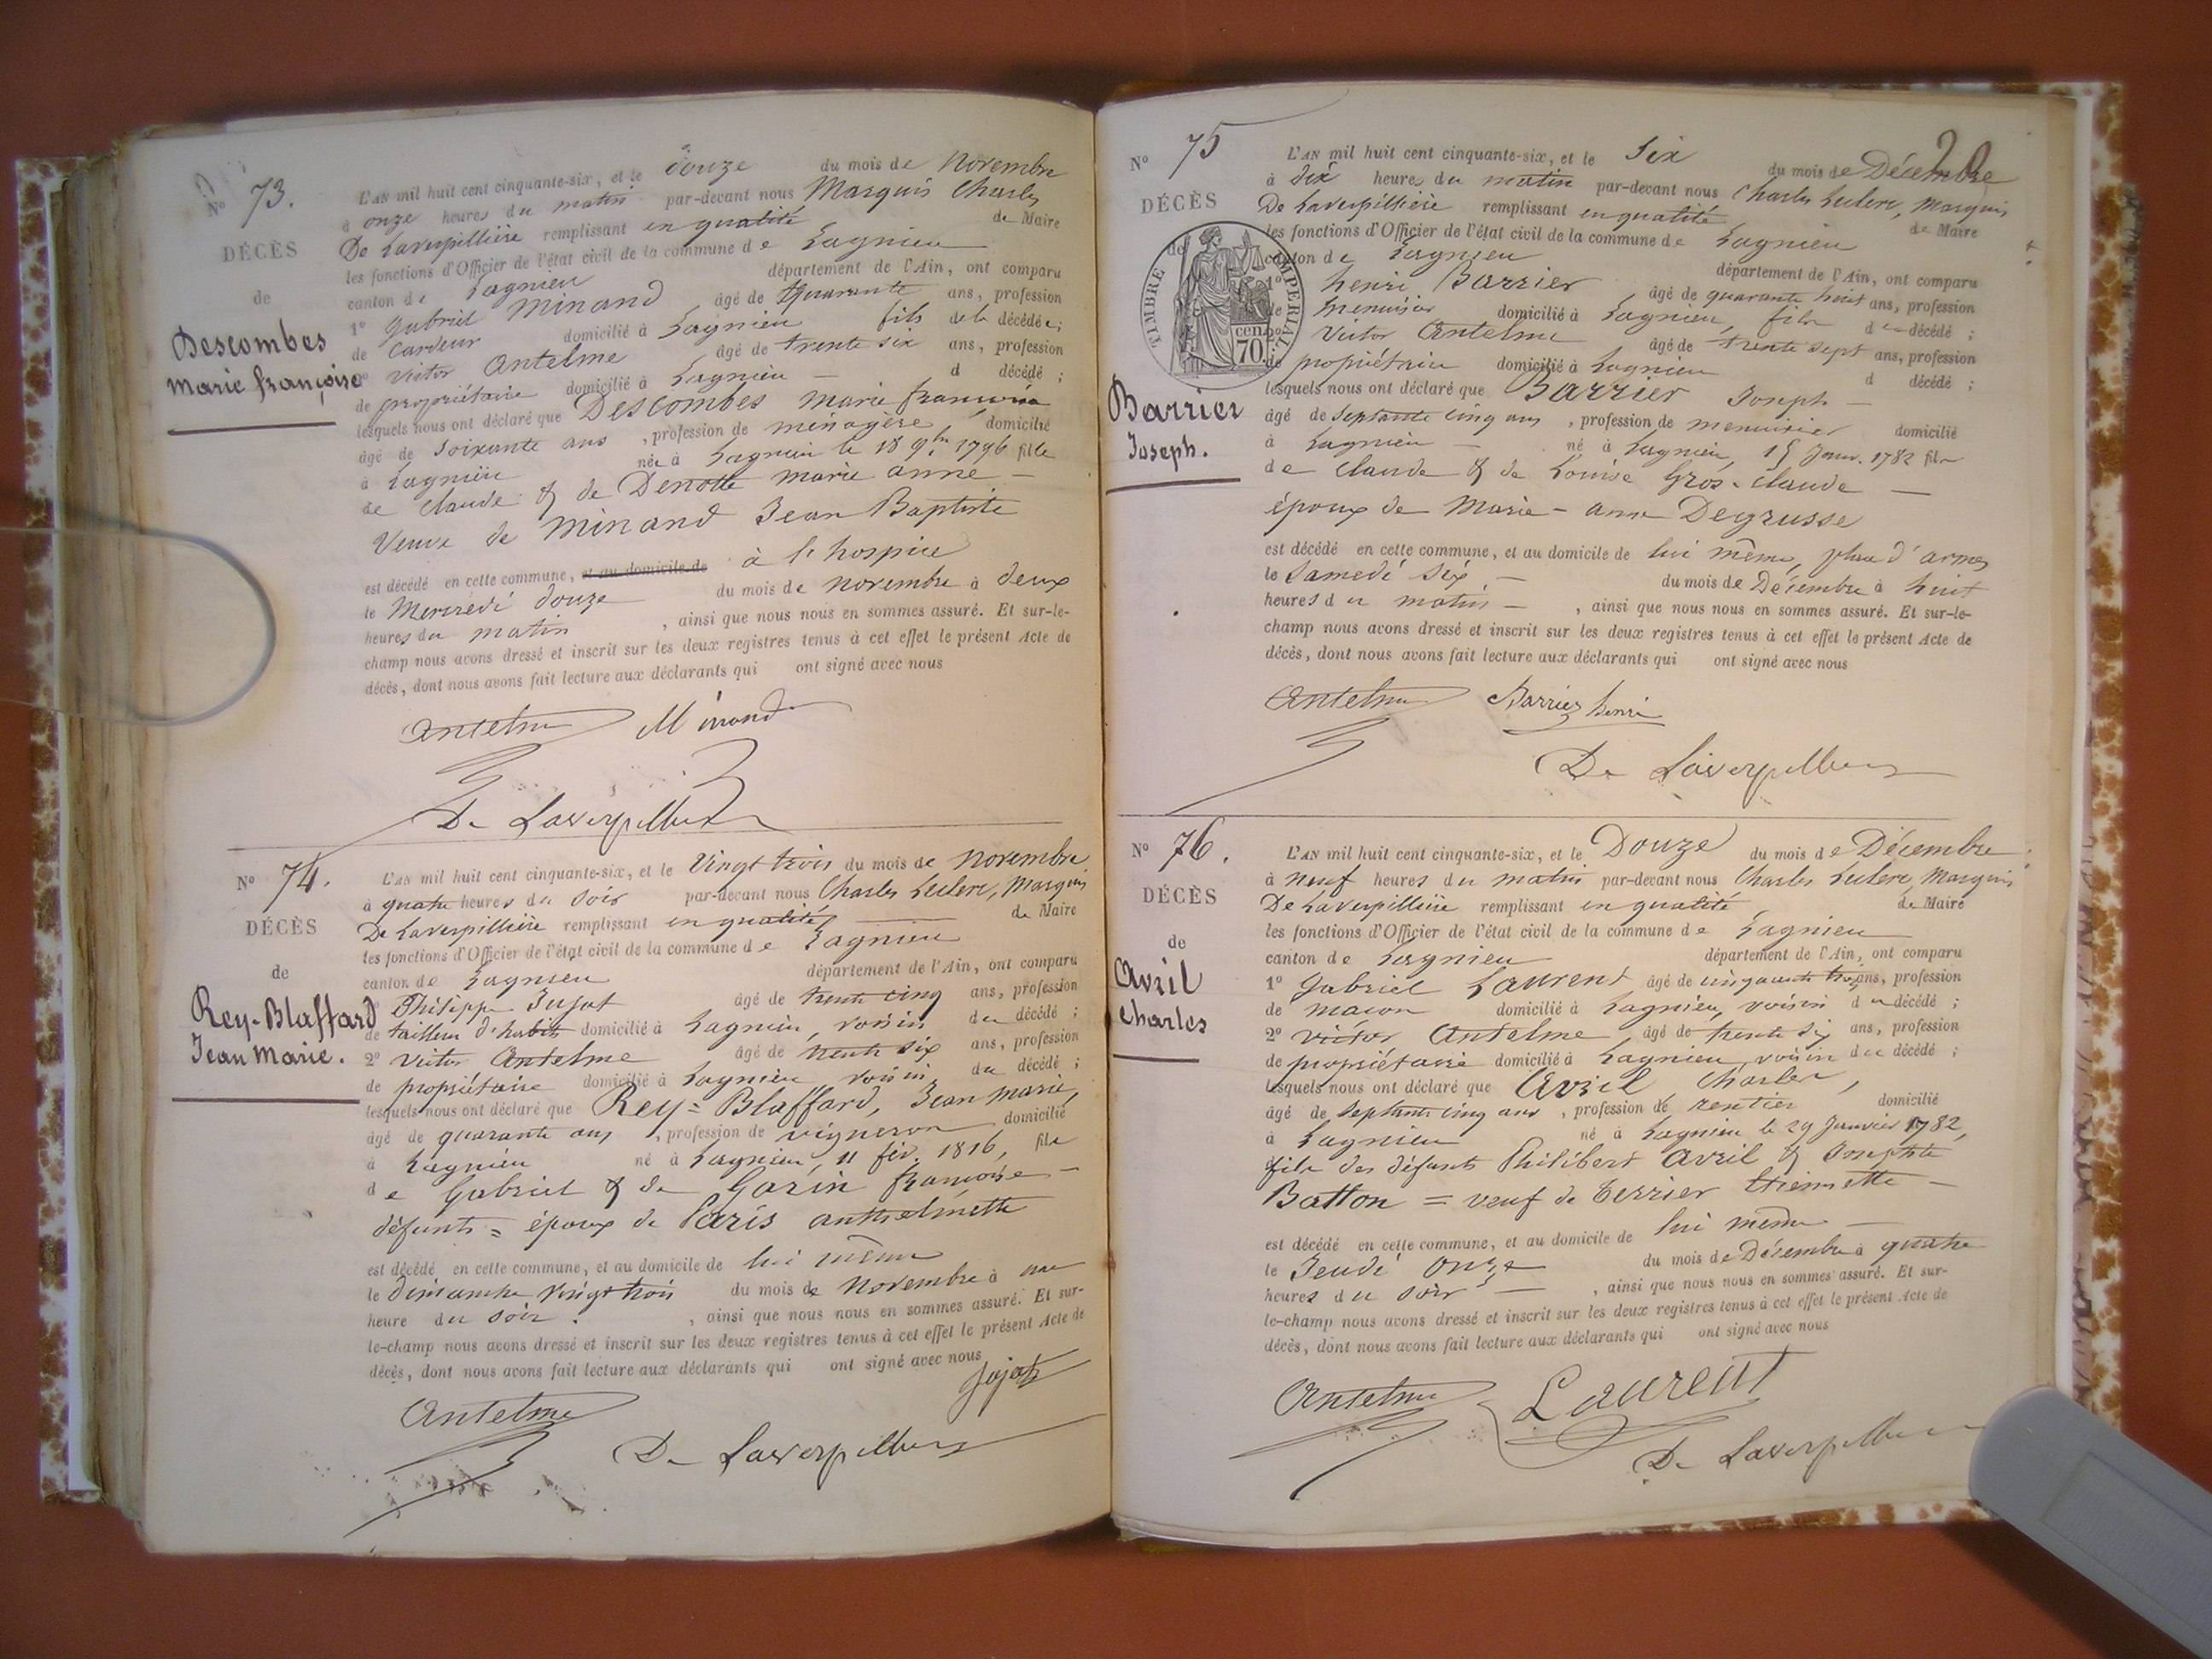 No 73.
DÉCÈS
de
Descombes
Marie françoise
L'AN mil huit cent cinquante-six, et le douze du mois de Novembre
à onze heures du matin par-devant nous Marquis Charles
De Laverpillière remplissant en qualité de Maire
les fonctions d'Officier de l'état civil de la commune de Lagnieu
canton de Lagnieu département de l'Ain, ont comparu
1º Gabriel Minand âgé de quarante ans, profession
de Cardeur domicilié à Lagnieu fils de la décédée;
2º Victor Antelme âgé de trente six ans, profession
de propriétaire domicilié à Lagnieu – d décédé;
lesquels nous ont déclaré que Descombes marie françoise
âgé de Soixante ans, profession de ménagère domicilié
à Lagnieu née à Lagnieu le 18 9bre 1796 fille
de Claude & de Denotte marie anne –
Veuve de Minand Jean Baptiste
est décédé en cette commune, et au domicile de à l'hospice
le Mercredi douze du mois de novembre à deux
heures du matin, ainsi que nous nous en sommes assuré. Et sur-le-
champ nous avons dressé et inscrit sur les deux registres tenus à cet effet le présent Acte de
décès, dont nous avons fait lecture aux déclarants qui ont signé avec nous
Antelme Minand
De Laverpillière
No 74.
DÉCÈS
de
Rey-Blaffard
Jean Marie.
L'AN mil huit cent cinquante-six, et le Vingt trois du mois de Novembre
à quatre heures du soir par-devant nous Charles Leclerc, Marquis
De Laverpillière remplissant en qualité de Maire
les fonctions d'Officier de l'état civil de la commune de Lagnieu
canton de Lagnieu département de l'Ain, ont comparu
Philippe Jujat âgé de trente cinq ans, profession
de tailleur d'habits domicilié à Lagnieu, voisin du décédé;
2º Victor Antelme âgé de trente six ans, profession
de propriétaire domicilié à Lagnieu voisin du décédé;
lesquels nous ont déclaré que Rey=Blaffard, Jean marie,
âgé de quarante ans, profession de vigneron domicilié
à Lagnieu né à Lagnieu, 11 fév. 1816, fils
de Gabriel & de Garin françoise –
défunts = époux de Paris anthelmette
est décédé en cette commune, et au domicile de lui même
le dimanche vingt trois du mois de Novembre à une
heure du soir., ainsi que nous nous en sommes assuré. Et sur-
le-champ nous avons dressé et inscrit sur les deux registres tenus à cet effet le présent Acte de
décès, dont nous avons fait lecture aux déclarants qui ont signé avec nous
Jujat
Antelme
De Laverpillière
No 75
DÉCÈS
de
TIMBRE IMPERIAL
cen. 70.
Barrier
Joseph.
L'AN mil huit cent cinquante-six, et le Six du mois de Décembre
à dix heures du matin par-devant nous Charles Leclerc, Marquis
De Laverpillière remplissant en qualité de Maire
les fonctions d'Officier de l'état civil de la commune de Lagnieu
canton de Lagnieu département de l'Ain, ont comparu
1º henri Barrier âgé de quarante huit ans, profession
de menuisier domicilié à Lagnieu, fils du décédé;
2º Victor Antelme âgé de trente sept ans, profession
de propriétaire domicilié à Lagnieu d décédé;
lesquels nous ont déclaré que Barrier Joseph –
âgé de Septante cinq ans, profession de menuisier domicilié
à Lagnieu – né à Lagnieu, 15 Janv. 1782 fils
de Claude & de Louise Gros-Claude –
époux de Marie-anne Degrusse
est décédé en cette commune, et au domicile de lui même, place d'armes
le Samedi six – du mois de Décembre à huit
heures du matin –, ainsi que nous nous en sommes assuré. Et sur-le-
champ nous avons dressé et inscrit sur les deux registres tenus à cet effet le présent Acte de
décès, dont nous avons fait lecture aux déclarants qui ont signé avec nous
Antelme Barrier henri
De Laverpillière
No 76.
DÉCÈS
de
Avril
Charles
L'AN mil huit cent cinquante-six, et le Douze du mois de Décembre
à neuf heures du matin par-devant nous Charles Leclerc, Marquis
De Laverpillière remplissant en qualité de Maire
les fonctions d'Officier de l'état civil de la commune de Lagnieu
canton de Lagnieu département de l'Ain, ont comparu
1º Gabriel Laurent âgé de cinquante trois ans, profession
de maçon domicilié à Lagnieu, voisin du décédé;
2º Victor Antelme, âgé de trente six ans, profession
de propriétaire domicilié à Lagnieu voisin du décédé;
lesquels nous ont déclaré que Avril Charles,
âgé de Septante cinq ans, profession de rentier domicilié
à Lagnieu né à Lagnieu le 29 Janvier 1782,
fils des défunts Philibert Avril & Josephte
Batton = veuf de Terrier Etiennette –
est décédé en cette commune, et au domicile de lui même –
le Jeudi Onze – du mois de Décembre à quatre
heures du soir –, ainsi que nous nous en sommes assuré. Et sur-
le-champ nous avons dressé et inscrit sur les deux registres tenus à cet effet le présent Acte de
décès, dont nous avons fait lecture aux déclarants qui ont signé avec nous
Antelme Laurent
De Laverpillière